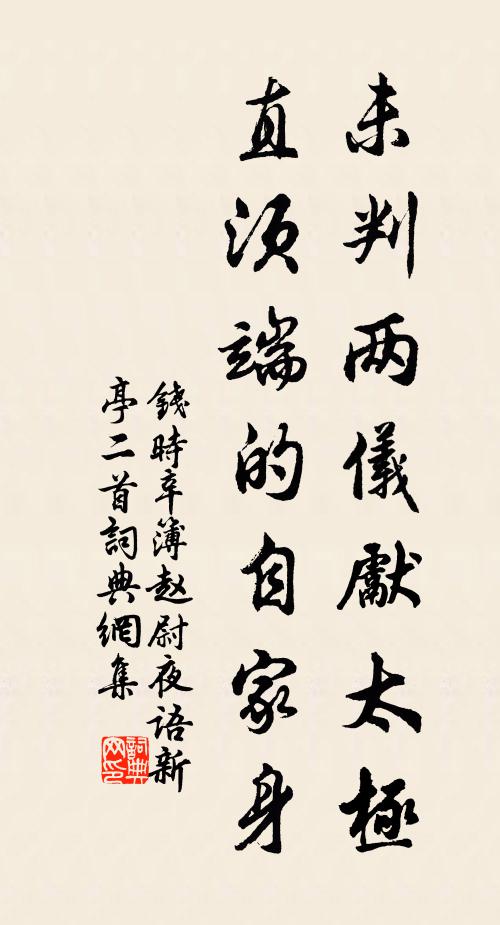 未判两儀獻太極
直須端的自家身
錢時辛簿赵尉夜语新
亭二首詞典網集
詞典网